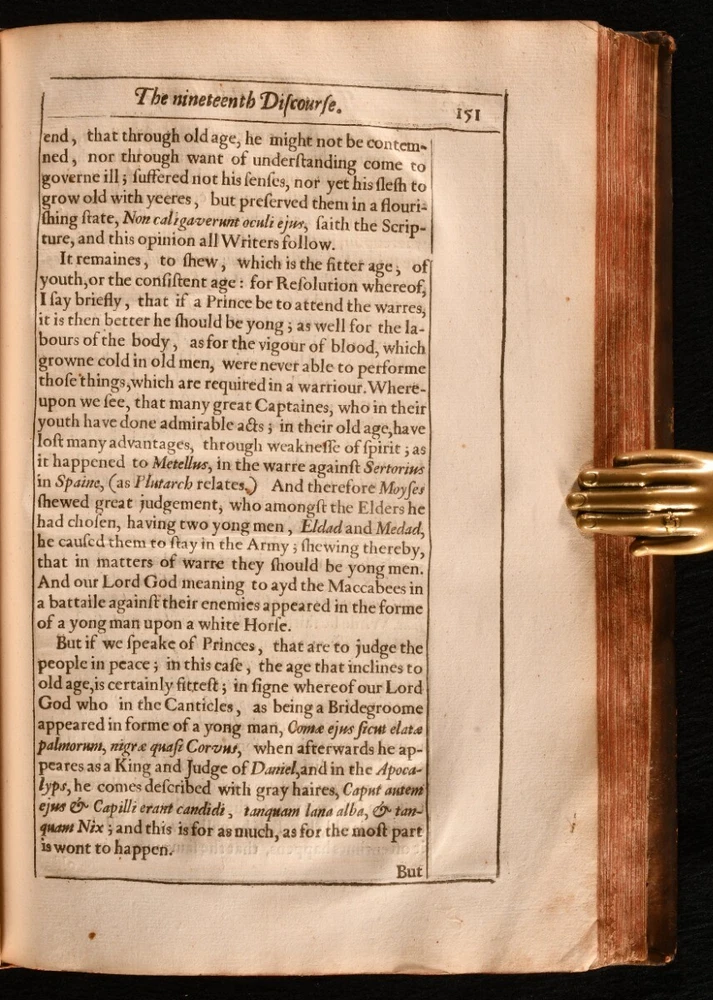 The nineteenth Diſcourſe.
151
end, that through old age, he might not be contem-
ned, nor through want of underſtanding come to
governe ill; ſuffered not his ſenſes, nor yet his fleſh to
grow old with yeeres, but preſerved them in a flouri-
ſhing ſtate, Non caligaverunt oculi ejus, ſaith the Scrip-
ture, and this opinion all Writers follow.
It remaines, to ſhew, which is the fitter age, of
youth, or the conſiſtent age: for Reſolution whereof,
I ſay briefly, that if a Prince be to attend the warres,
it is then better he ſhould be yong; as well for the la-
bours of the body, as for the vigour of blood, which
growne cold in old men, were never able to performe
thoſe things, which are required in a warriour. Where-
upon we ſee, that many great Captaines, who in their
youth have done admirable acts; in their old age, have
loſt many advantages, through weakneſſe of ſpirit; as
it happened to Metellus, in the warre againſt Sertorius
in Spaine, (as Plutarch relates.) And therefore Moyſes
ſhewed great judgement, who amongſt the Elders he
had choſen, having two yong men, Eldad and Medad,
he cauſed them to ſtay in the Army; ſhewing thereby,
that in matters of warre they ſhould be yong men.
And our Lord God meaning to ayd the Maccabees in
a battaile againſt their enemies appeared in the forme
of a yong man upon a white Horſe.
But if we ſpeake of Princes, that are to judge the
people in peace; in this caſe, the age that inclines to
old age, is certainly fitteſt; in ſigne whereof our Lord
God who in the Canticles, as being a Bridegroome
appeared in forme of a yong man, Comæ ejus ſicut elatæ
palmorum, nigræ quaſi Corvus, when afterwards he ap-
peares as a King and Judge of Daniel, and in the Apoca-
lyps, he comes deſcribed with gray haires, Caput autem
ejus & Capilli erant candidi, tanquam lana alba, & tan-
quam Nix; and this is for as much, as for the moſt part
is wont to happen.
But